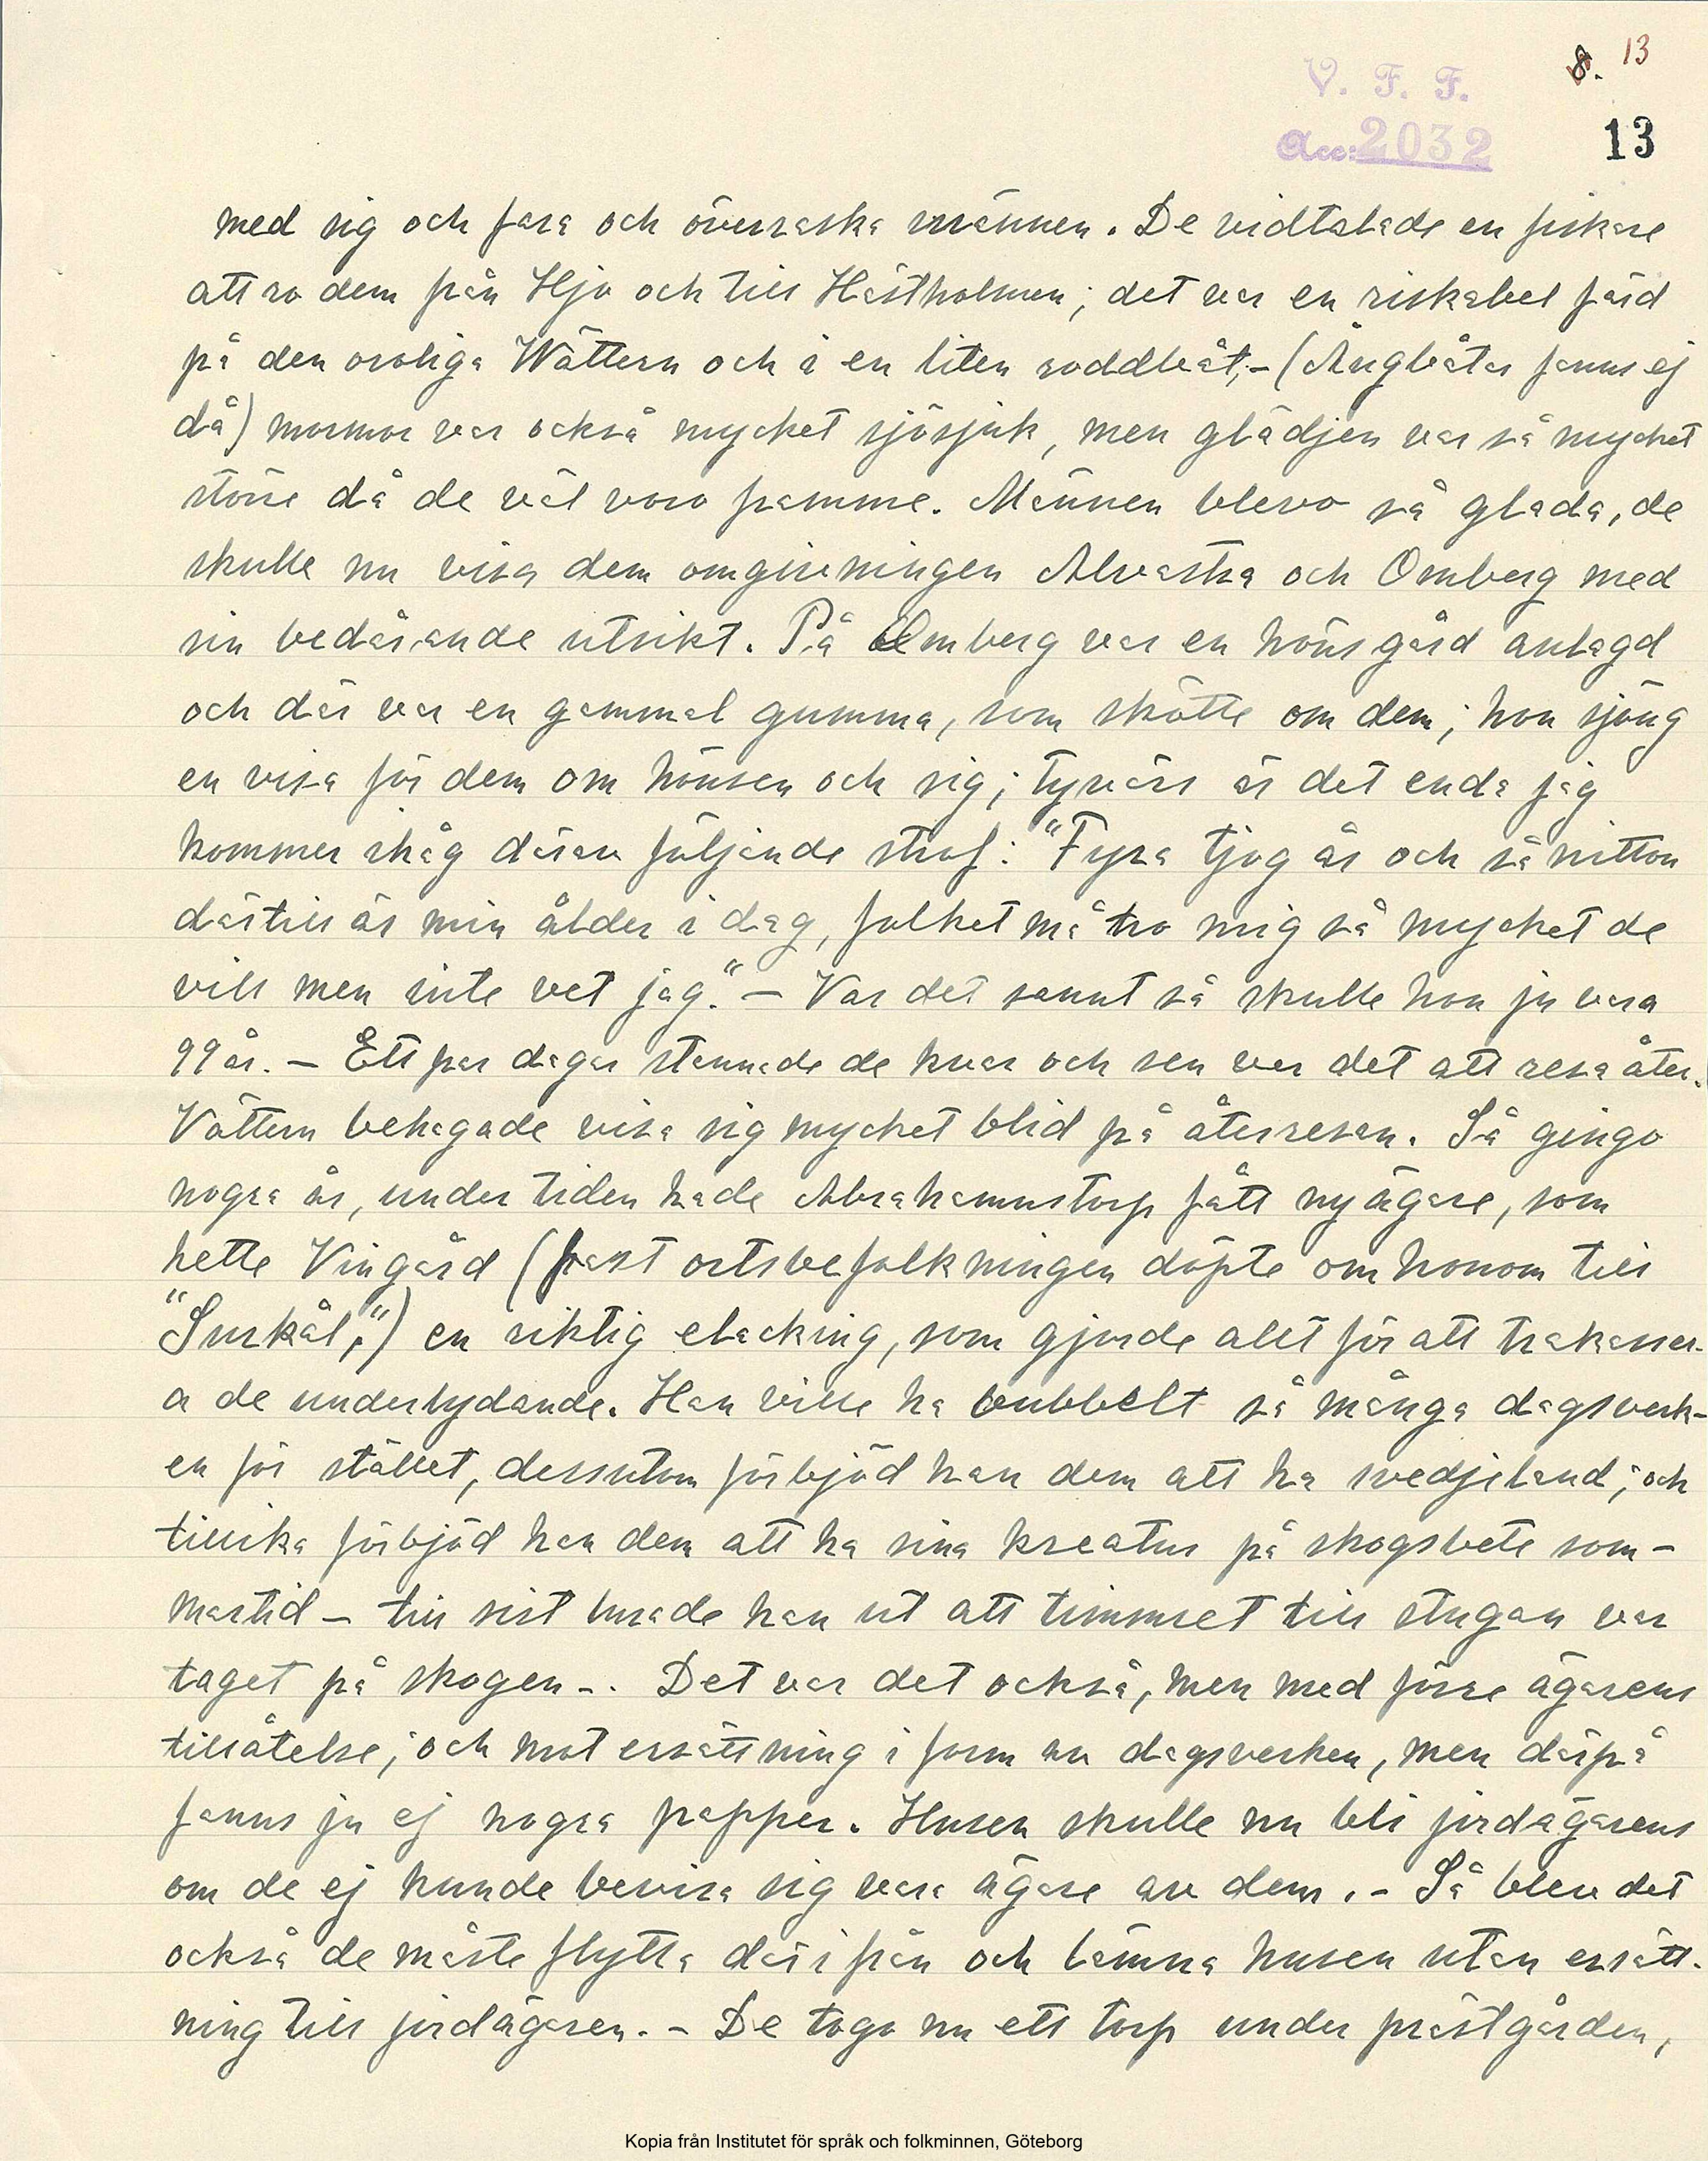 8. 13
V. F. F.
Acc: 2032 13
med sig och fara och överraska männen. De vidtalade en fiskare
att ro dem från Hjo och till Hästholmen; det var en riskabel färd
på den oroliga Wättern och i en liten roddbåt;- (Ångbåtar fanns ej
då) mormor var också mycket sjösjuk, men glädjen var så mycket
större då de väl voro framme. Männen blevo så glada, de
skulle nu visa dem omgivningen Alvastra och Omberg med
sin bedårande utsikt. På Omberg var en hönsgård anlagd
och där var en gammal gumma, som skötte om dem; hon sjöng
en visa för dem om hönsen och sig; tyvärr är det enda jag
kommer ihåg därav följande strof: "Fyra tjog år och så nitton
därtill är min ålder i dag, folket må tro mig så mycket de
vill men inte vet jag." – Var det sannt så skulle hon ju vara
99 år. – Ett par dagar stannade de kvar och sen var det att resa åter.
Vättern behagade visa sig mycket blid på återresan. Så gingo
nogra år, under tiden hade Abrahamnstorp fått ny ägare, som
hette Vingård (fast ortsbefolkningen döpte om honom till
"Surkål,") en riktig elacking, som gjorde allt för att trakasser-
a de underlydande. Han ville ha dubbelt så många dagsverk-
en för stället, dessutom förbjöd han dem att ha svedjeland; och
tillika förbjöd han dem att ha sina kreatur på skogsbete som-
martid – till sist lurade han ut att timmret till stugan var
taget på skogen -. Det var det också, men med förre ägarens
tillåtelse; och mot ersättning i form av dagsverken, men därpå
fanns ju ej nogra papper. Husen skulle nu bli jordägarens
om de ej kunde bevisa sig vara ägare av dem. - Så blev det
också de måste flytta därifrån och lämna husen utan ersätt-
ning till jordägaren. - De togo nu ett torp under prästgården,
Kopia från Institutet för språk och folkminnen, Göteborg